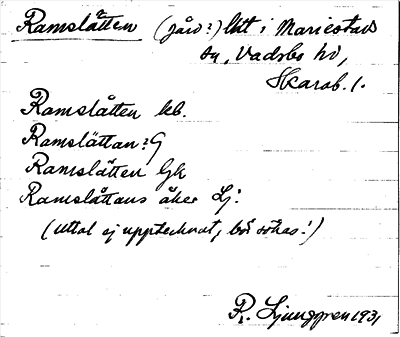 Ramslåtten (gård?) lht i Mariestads
sn, Vadsbo hd,
Skarab. l.
Ramslåtten kb.
Ramslåttan: G
Ramslåtten Gk
Ramslåttans åker Lj:
(uttal ej upptecknat, bör sökas!)
R. Ljunggren 1931